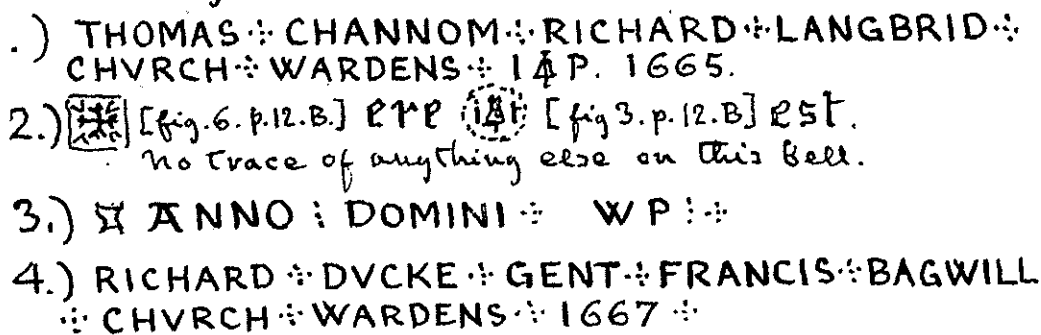 .) THOMAS ⁘ CHANNOM ⁘ RICHARD ⁘ LANGBRID ⁘
CHVRCH ⁘ WARDENS ⁘ I P. 1665.
2.) [fig. 6. p. 12. B.] ere [fig 3. p. 12. B] est.
no trace of anything else on this Bell.
3.) ¤ ANNO ⁝ DOMINI ⁘ WP ⁝ ⁘
4.) RICHARD ⁘ DVCKE ⁘ GENT ⁘ FRANCIS ⁘ BAGWILL
⁘ CHVRCH ⁘ WARDENS ⁘ 1667 ⁘